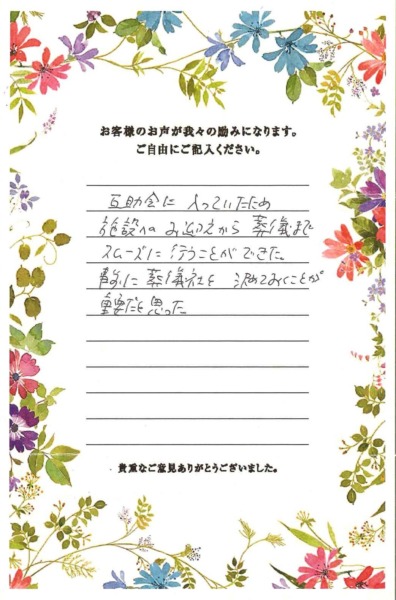 お客様のお声が我々の励みになります。
ご自由にご記入ください。
互助会に 入っていたため
施設へのお迎えから 葬儀まで
スムーズに 行うことができた。
事前に 葬儀社を 決めておくことが
重要だと思った
貴重なご意見ありがとうございました。